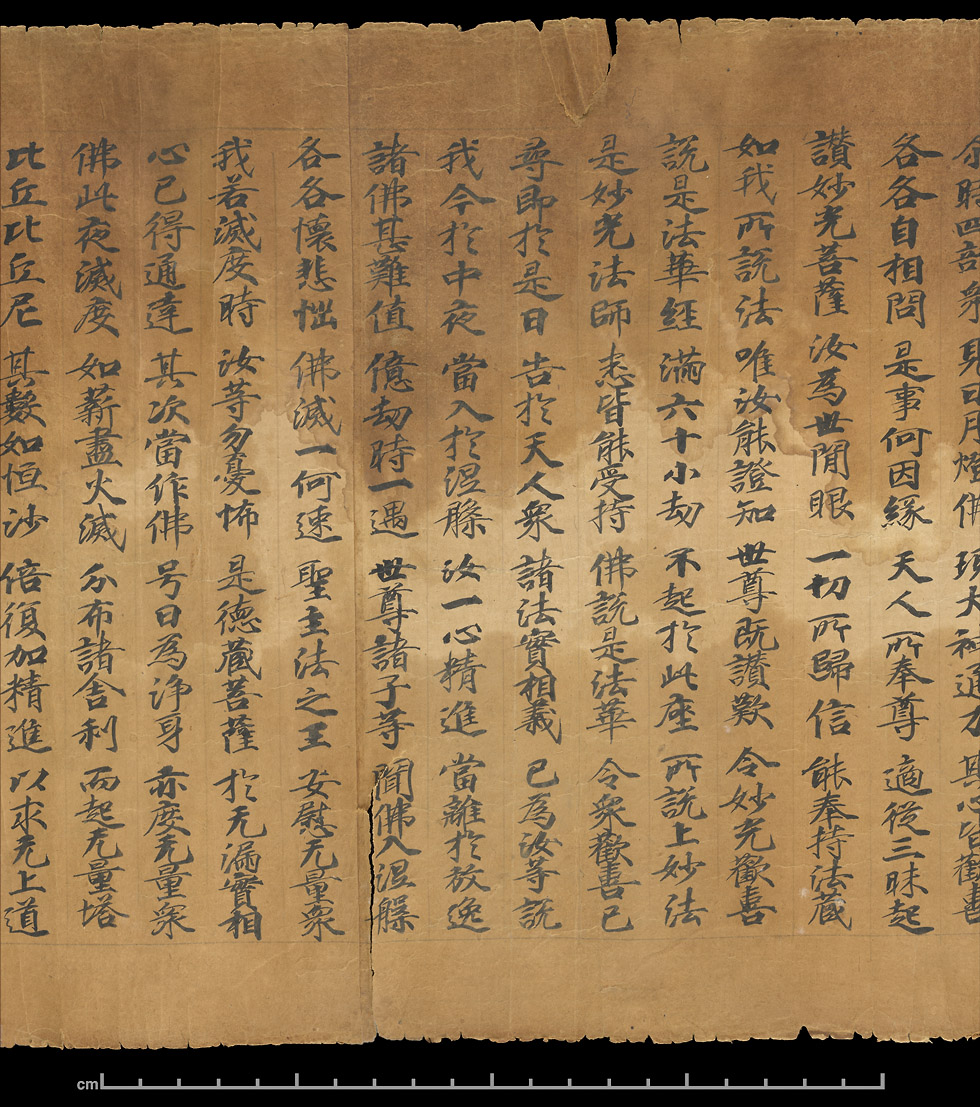 尒時四部眾 見日月燈佛 現大神通力 其心皆歡喜
各各自相問 是事何因緣 天人所奉尊 適從三昧起
讚妙光菩薩 汝為世閒眼 一切所歸信 能奉持法藏
如我所說法 唯汝能證知 世尊既讚歎 令妙光歡喜
說是法華經 滿六十小劫 不起於此座 所說上妙法
是妙光法師 悉皆能受持 佛說是法華 令眾歡喜已
尋即於是日 告於天人眾 諸法實相義 已為汝等說
我今於中夜 當入於涅槃 汝一心精進 當離於放逸
諸佛甚難值 億劫時一遇 世尊諸子等 聞佛入涅槃
各各懷悲惱 佛滅一何速 聖主法之王 安慰无量眾
我若滅度時 汝等勿憂怖 是德藏菩薩 於无漏實相
心已得通達 其次當作佛 号曰為淨身 亦度无量眾
佛此夜滅度 如薪盡火滅 分布諸舍利 而起无量塔
比丘比丘尼 其數如恒沙 倍復加精進 以求无上道
cm